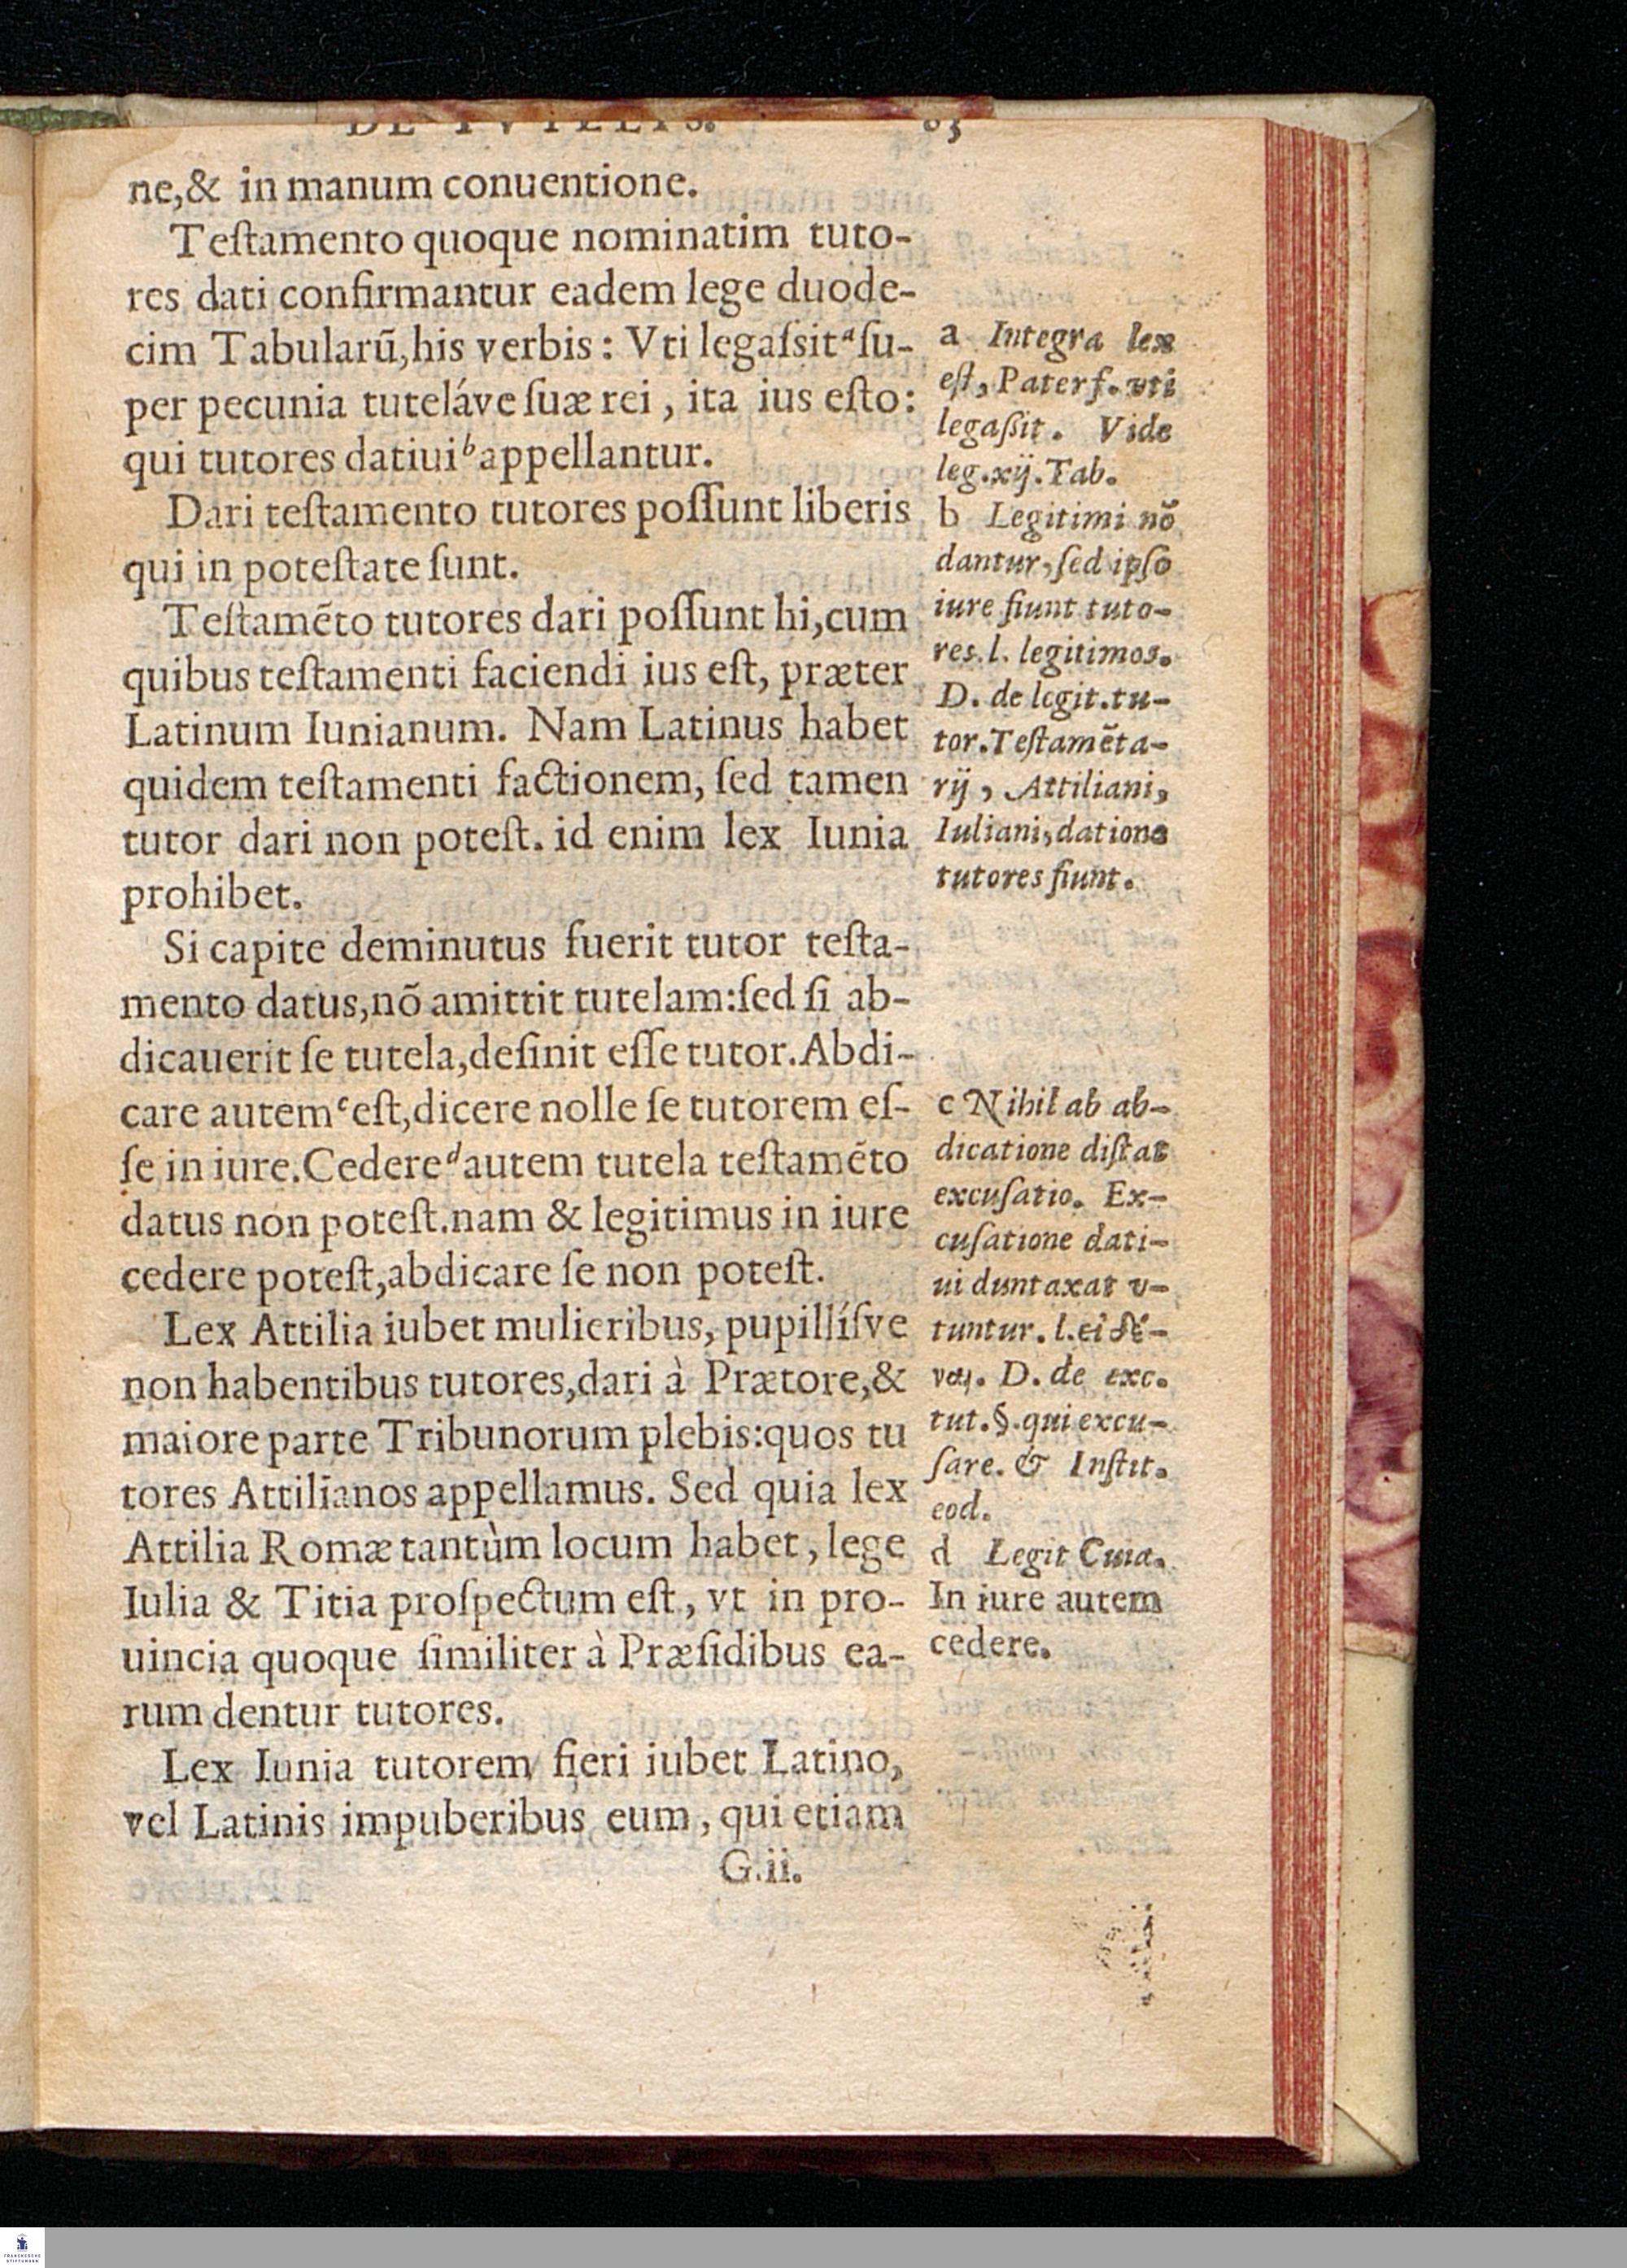 DE TVTELIS. 83
ne,& in manum conuentione.
Teſtamento quoque nominatim tuto-
res dati confirmantur eadem lege duode-
cim Tabularū,his verbis : Vti legaſsit ᵃ ſu-
per pecunia tuteláve ſuæ rei , ita ius eſto:
qui tutores datiui ᵇ appellantur.
Dari teſtamento tutores poſſunt liberis
qui in poteſtate ſunt.
Teſtamēto tutores dari poſſunt hi,cum
quibus teſtamenti faciendi ius eſt, præter
Latinum Iunianum. Nam Latinus habet
quidem teſtamenti factionem, ſed tamen
tutor dari non poteſt. id enim lex Iunia
prohibet.
Si capite deminutus fuerit tutor teſta-
mento datus,nō amittit tutelam:ſed ſi ab-
dicauerit ſe tutela,deſinit eſſe tutor.Abdi-
care autem ᶜ eſt,dicere nolle ſe tutorem eſ-
ſe in iure.Cedere ᵈ autem tutela teſtamēto
datus non poteſt.nam & legitimus in iure
cedere poteſt,abdicare ſe non poteſt.
Lex Attilia iubet mulieribus, pupillíſve
non habentibus tutores,dari à Prætore,&
maiore parte Tribunorum plebis:quos tu
tores Attilianos appellamus. Sed quia lex
Attilia Romæ tantùm locum habet , lege
Iulia & Titia proſpectum eſt , vt in pro-
uincia quoque ſimiliter à Præſidibus ea-
rum dentur tutores.
Lex Iunia tutorem fieri iubet Latino,
vel Latinis impuberibus eum , qui etiam
G.ii.
a Integra lex
eſt, Paterf. vti
legaßit. Vide
leg.xij.Tab.
b Legitimi nō
dantur, ſed ipſo
iure fiunt tuto-
res. l. legitimos.
D. de legit.tu-
tor.Teſtamēta-
rij , Attiliani,
Iuliani,datione
tutores fiunt.
c Nihil ab ab-
dicatione diſtat
excuſatio. Ex-
cuſatione dati-
ui duntaxat v-
tuntur. l.
D. de exc.
tut.§.qui excu-
ſare. & Inſtit.
eod.
d Legit Cuia.
In iure autem
cedere.
FRANCKESCHE
STIFTUNGEN